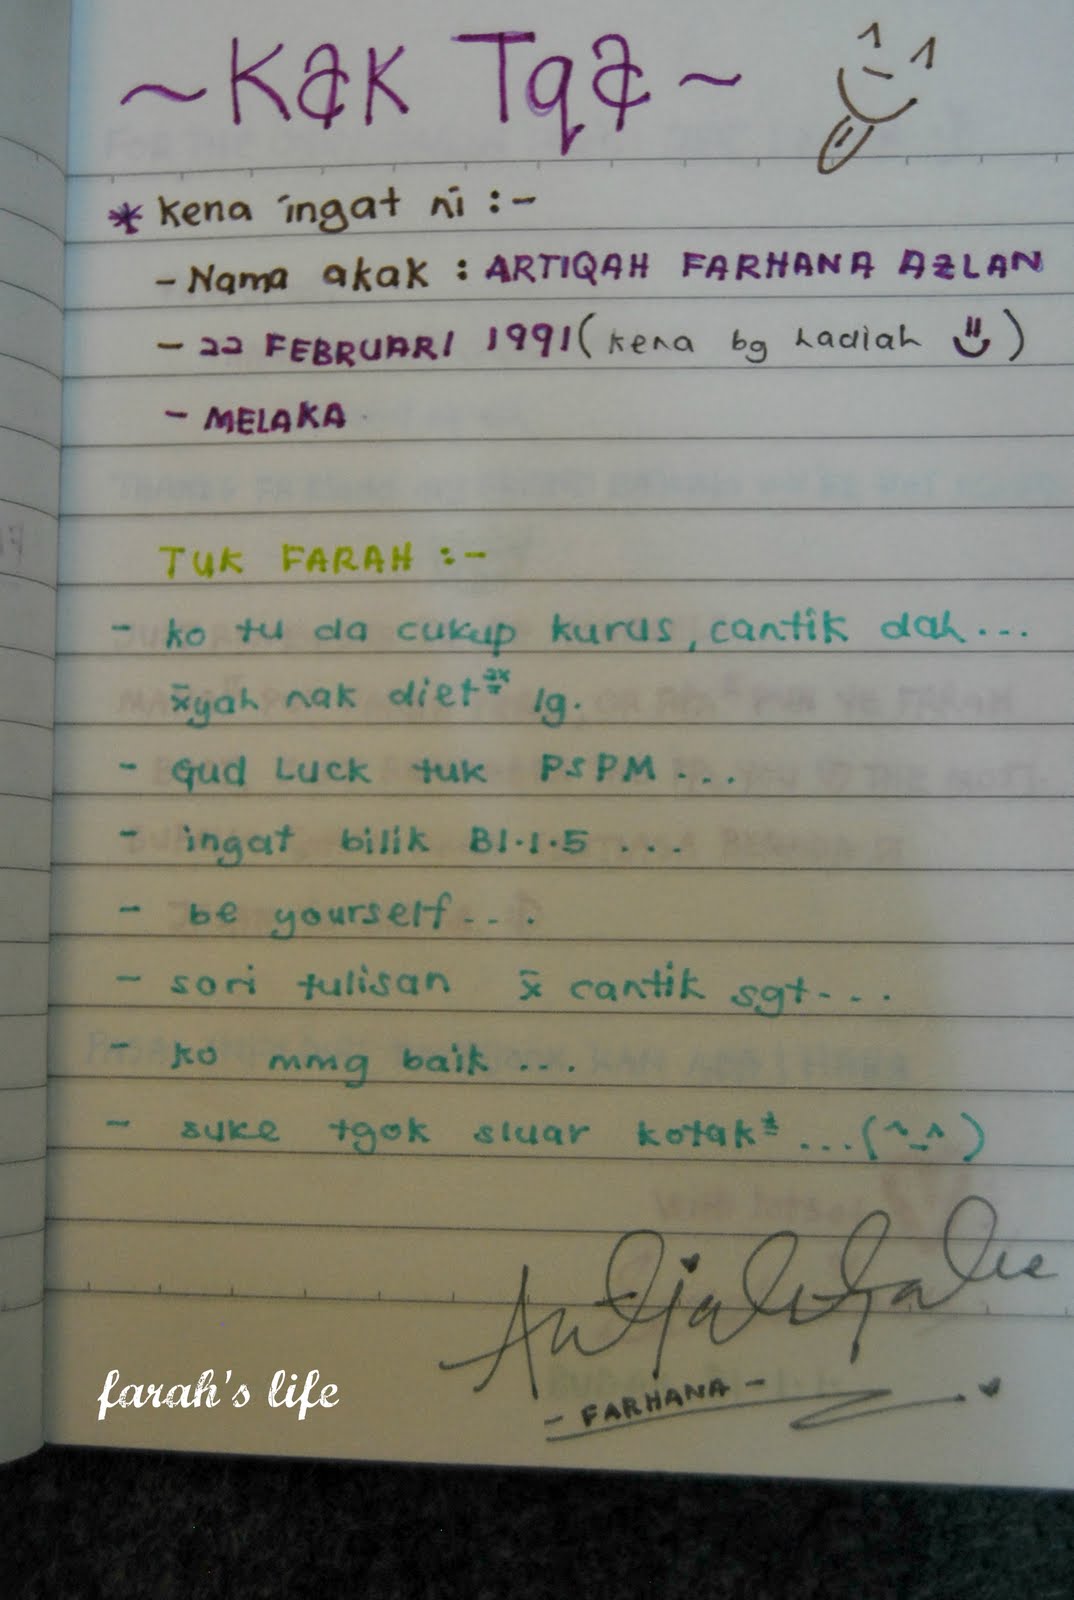 ~ Kak Tqa ~
* Kena ingat ni :-
- Nama akak : ARTIQAH FARHANA AZLAN
- 22 FEBRUARI 1991 (kena bg hadiah)
- MELAKA
TUK FARAH :-
- ko tu da cukup kurus, cantik dah...
x̄yah nak diet²ˣ lg.
- Gud Luck tuk PSPM...
- ingat bilik B1.1.5 ....
- be yourself....
- sori tulisan x̄ cantik sgt....
- ko mmg baik ...
- suke tgok sluar kotak² ...(^_^)
- FARHANA -
farah's life